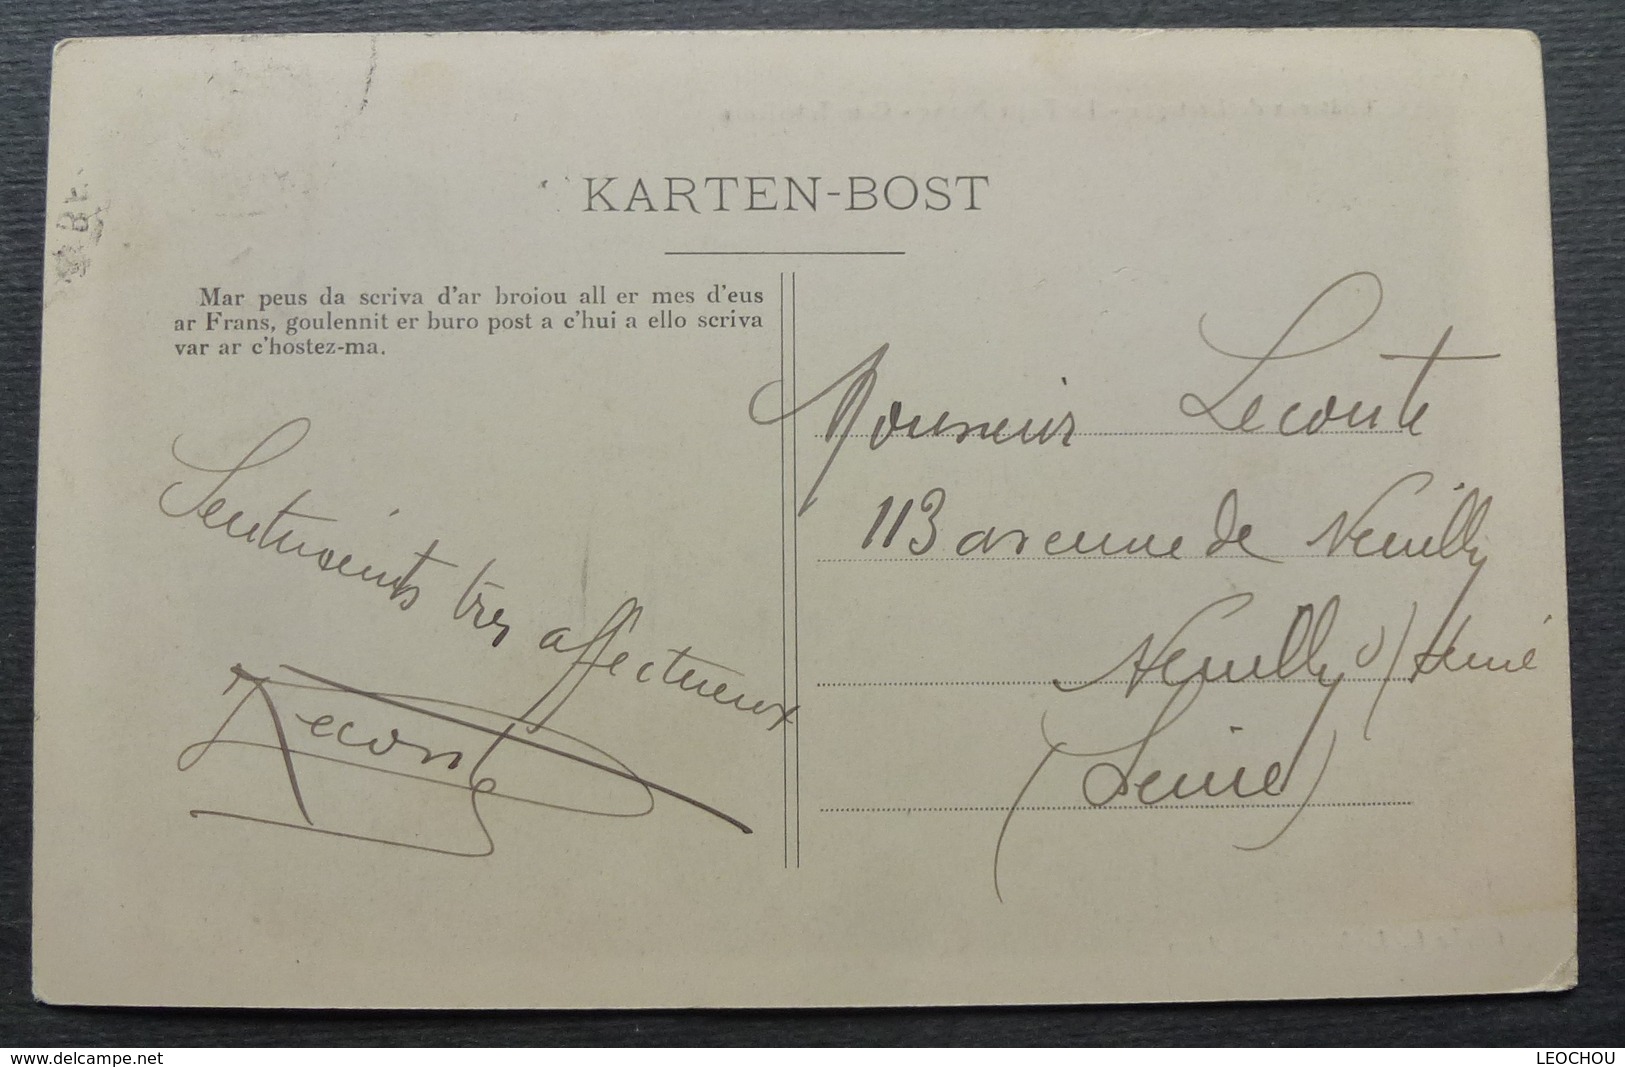 KARTEN-BOST
Mar peus da scriva d'ar broiou all er mes d'eus
ar Frans, goulennit er buro post a c'hui a ello scriva
var ar c'hostez-ma.
Sentiments très affectueux
Leconte
Monsieur Leconte
113 avenue de Neuilly
Neuilly s/ Seine
(Seine)
www.delcampe.net
LEOCHOU